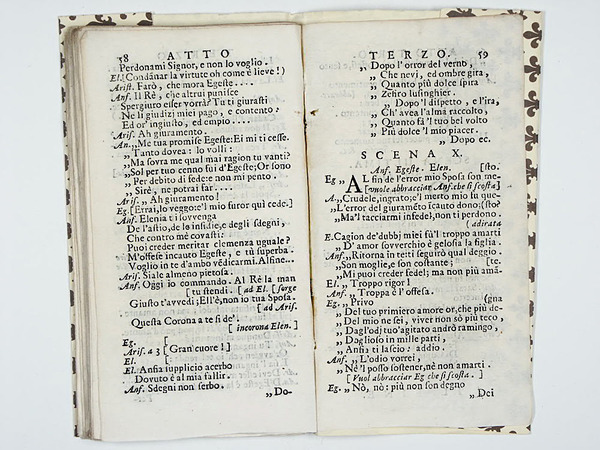 58 ATTO
Perdonami Signor, e non lo voglio.
El. Condãnar la virtute oh come è lieve!)
Arist. Farò, che mora Egeste....
Anf. Il Rè, che altrui punisce
Sperguro esser vorrà? Tu ti giurasti
Ne li giudizj miei pago, e contento:
Ed or' ingiusto, ed empio....
Aris. Ah giuramento.
An. „Me tua promise Egeste: Ei mi ti cesse.
„ Tanto dovea: lo volli:
„Ma sovra me qual mai ragion tu vanti?
„Sol per tuo cenno fui d'Egeste; Or sono
„ Per debito di fede: e non mi pento.
„ Sire, ne potrai far....
Aris. „ Ah giuramento!
Eg. [Errai, lo veggo: e'l mio furor qui cede.]
Anf. Elenia ti sovvenga
De l'astio, de le insidie, e degli sdegni,
Che contro mè covasti:
Puoi creder meritar clemenza uguale?
M'offese incauto Egeste, e tù superba.
Voglio in te d'ambo vẽdicarmi. Alfine...
Aris. Siale almeno pietosa.
Anf. Oggi io commando. Al Rè la man
[tu stendi. [ad El. [sorge
Giusto t'avvedi; Ell'è, non io tua Sposa.
[ad Aris.
Questa Corona a te si dè'.
[incorona Elen.]
Eg.
Aris. a 3 [Gran cuore!]
El.
El. Ansia supplicio acerbo
Dovuto è al mia fallir.
Anf. Sdegni non serbo.
„Do-
TERZO. 59
„ Dopo l' orror del verno,
„ Che nevi, ed ombre gira,
„ Quanto più dolce spira
„ Zefiro lusinghier.
„ Dopo'l dispetto, e l'ira,
„ Ch' avea l'alma raccolto,
„ Quanto fà'l tuo bel volto
„ Più dolce'l mio piacer.
„ Dopo ec.
SCENA X.
Anf. Egeste. Elen. [sto.
Eg „ Al fin de l'error mio Sposa son ne-
[vuole abbracciar Anf. che si scosta]
A. „Crudele, ingrato; e'l merto mio fu que-
„L'error del giuramẽto ìcauto dono: (sto?
„Ma'l tacciarmi infedel, non ti perdono.
(adirata
E. Cagion de' dubbj miei fù'l troppo amarti
„ D'amor sovverchio è gelosia la figlia.
Anf. „Ritorna in tetti seguirò qual deggio.
„Son moglie, e son costante; [te.
„Mi puoi creder fedel; ma non più amã-
El. „ Troppo rigor!
Anf. „ Troppa è l'offesa.
Eg. „ Privo (gna
„ Del tuo primiero amore or, che più de-
„ Del mio ne sei, viver non sò più teco,
„ Dagl'odj tuo'agitato andrò ramingo,
„ Doglioso in mille parti,
„ Ansia ti lascio: addio.
Anf. „L'odio vorrei,
„ Nè'l posso sostener, nè non amarti.
[Vuol abbracciar Eg che si scosta.]
Eg. „ Nò, nò: più non son degno
„ Dei